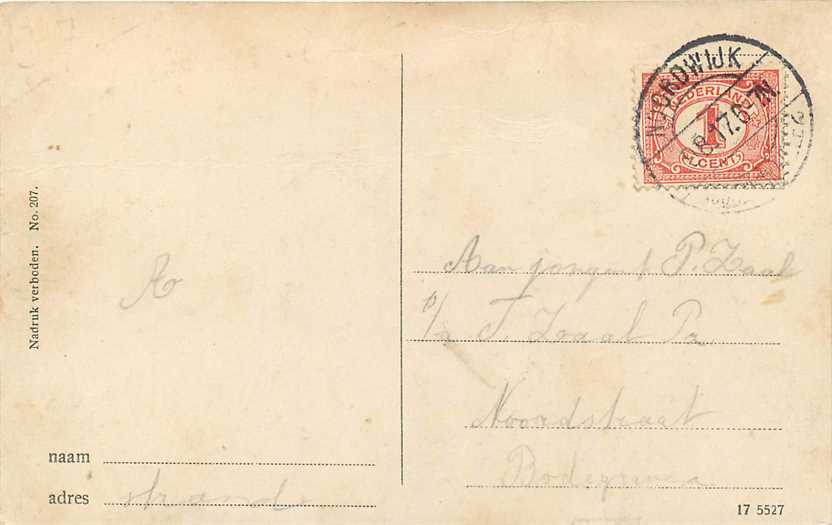 Nadruk verboden. No. 207.
naam
adres strand
NOORDWIJK
8.17.6-7N.
NEDERLAND
1
CENT
Aan jongen P. Zaal
p/a F. Zaal Pz.
Noordstraat
Bodegraven
17 5527